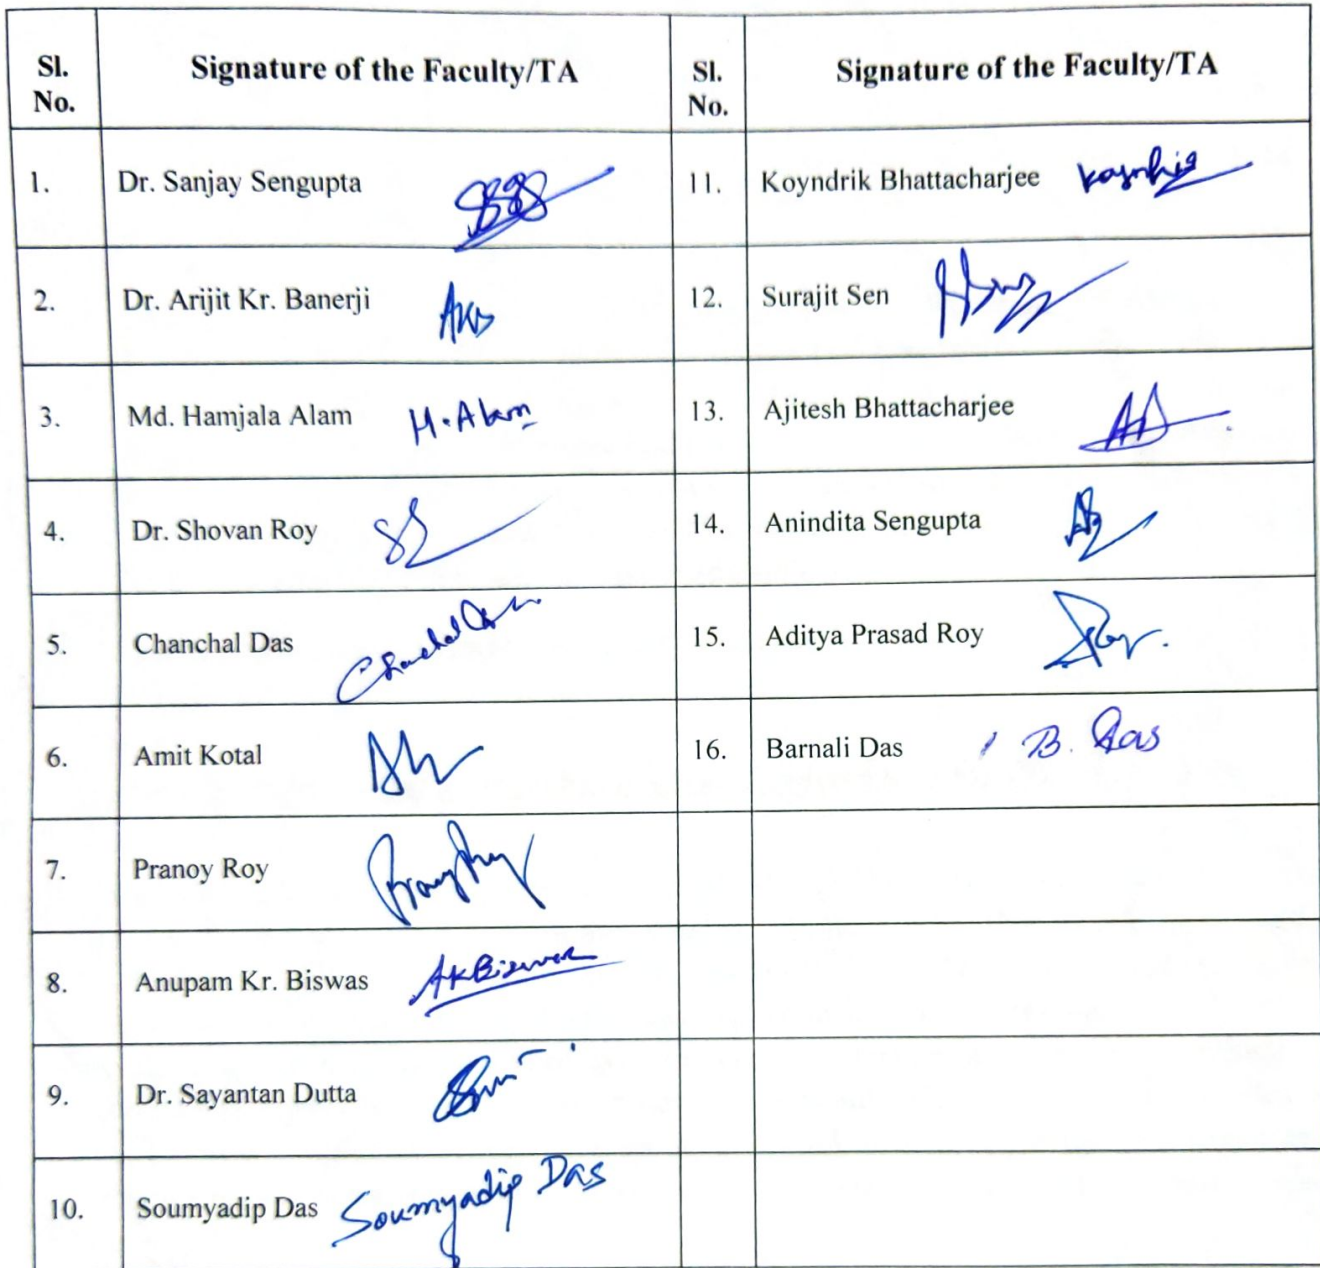 Sl. No. Signature of the Faculty/TA Sl. No. Signature of the Faculty/TA
1. Dr. Sanjay Sengupta 11. Koyndrik Bhattacharjee
2. Dr. Arijit Kr. Banerji AKB 12. Surajit Sen
3. Md. Hamjala Alam H. Alam 13. Ajitesh Bhattacharjee
4. Dr. Shovan Roy 14. Anindita Sengupta
5. Chanchal Das Chanchal Das 15. Aditya Prasad Roy
6. Amit Kotal 16. Barnali Das B. Das
7. Pranoy Roy Pranoy Roy
8. Anupam Kr. Biswas AKBiswas
9. Dr. Sayantan Dutta
10. Soumyadip Das Soumyadip Das